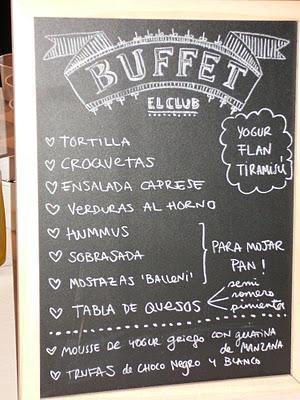 BUFFET
EL CLUB
YOGUR
FLAN
TIRAMISÚ
♡ TORTILLA
♡ CROQUETAS
♡ ENSALADA CAPRESE
♡ VERDURAS AL HORNO
♡ HUMMUS
♡ SOBRASADA
♡ MOSTAZAS 'BALLENI'
PARA MOJAR
PAN!
♡ TABLA DE QUESOS
semi
romero
pimienta
♡ MOUSSE DE YOGUR griego CON gelatina
de MANZANA
♡ TRUFAS de CHOCO NEGRO Y BLANCO